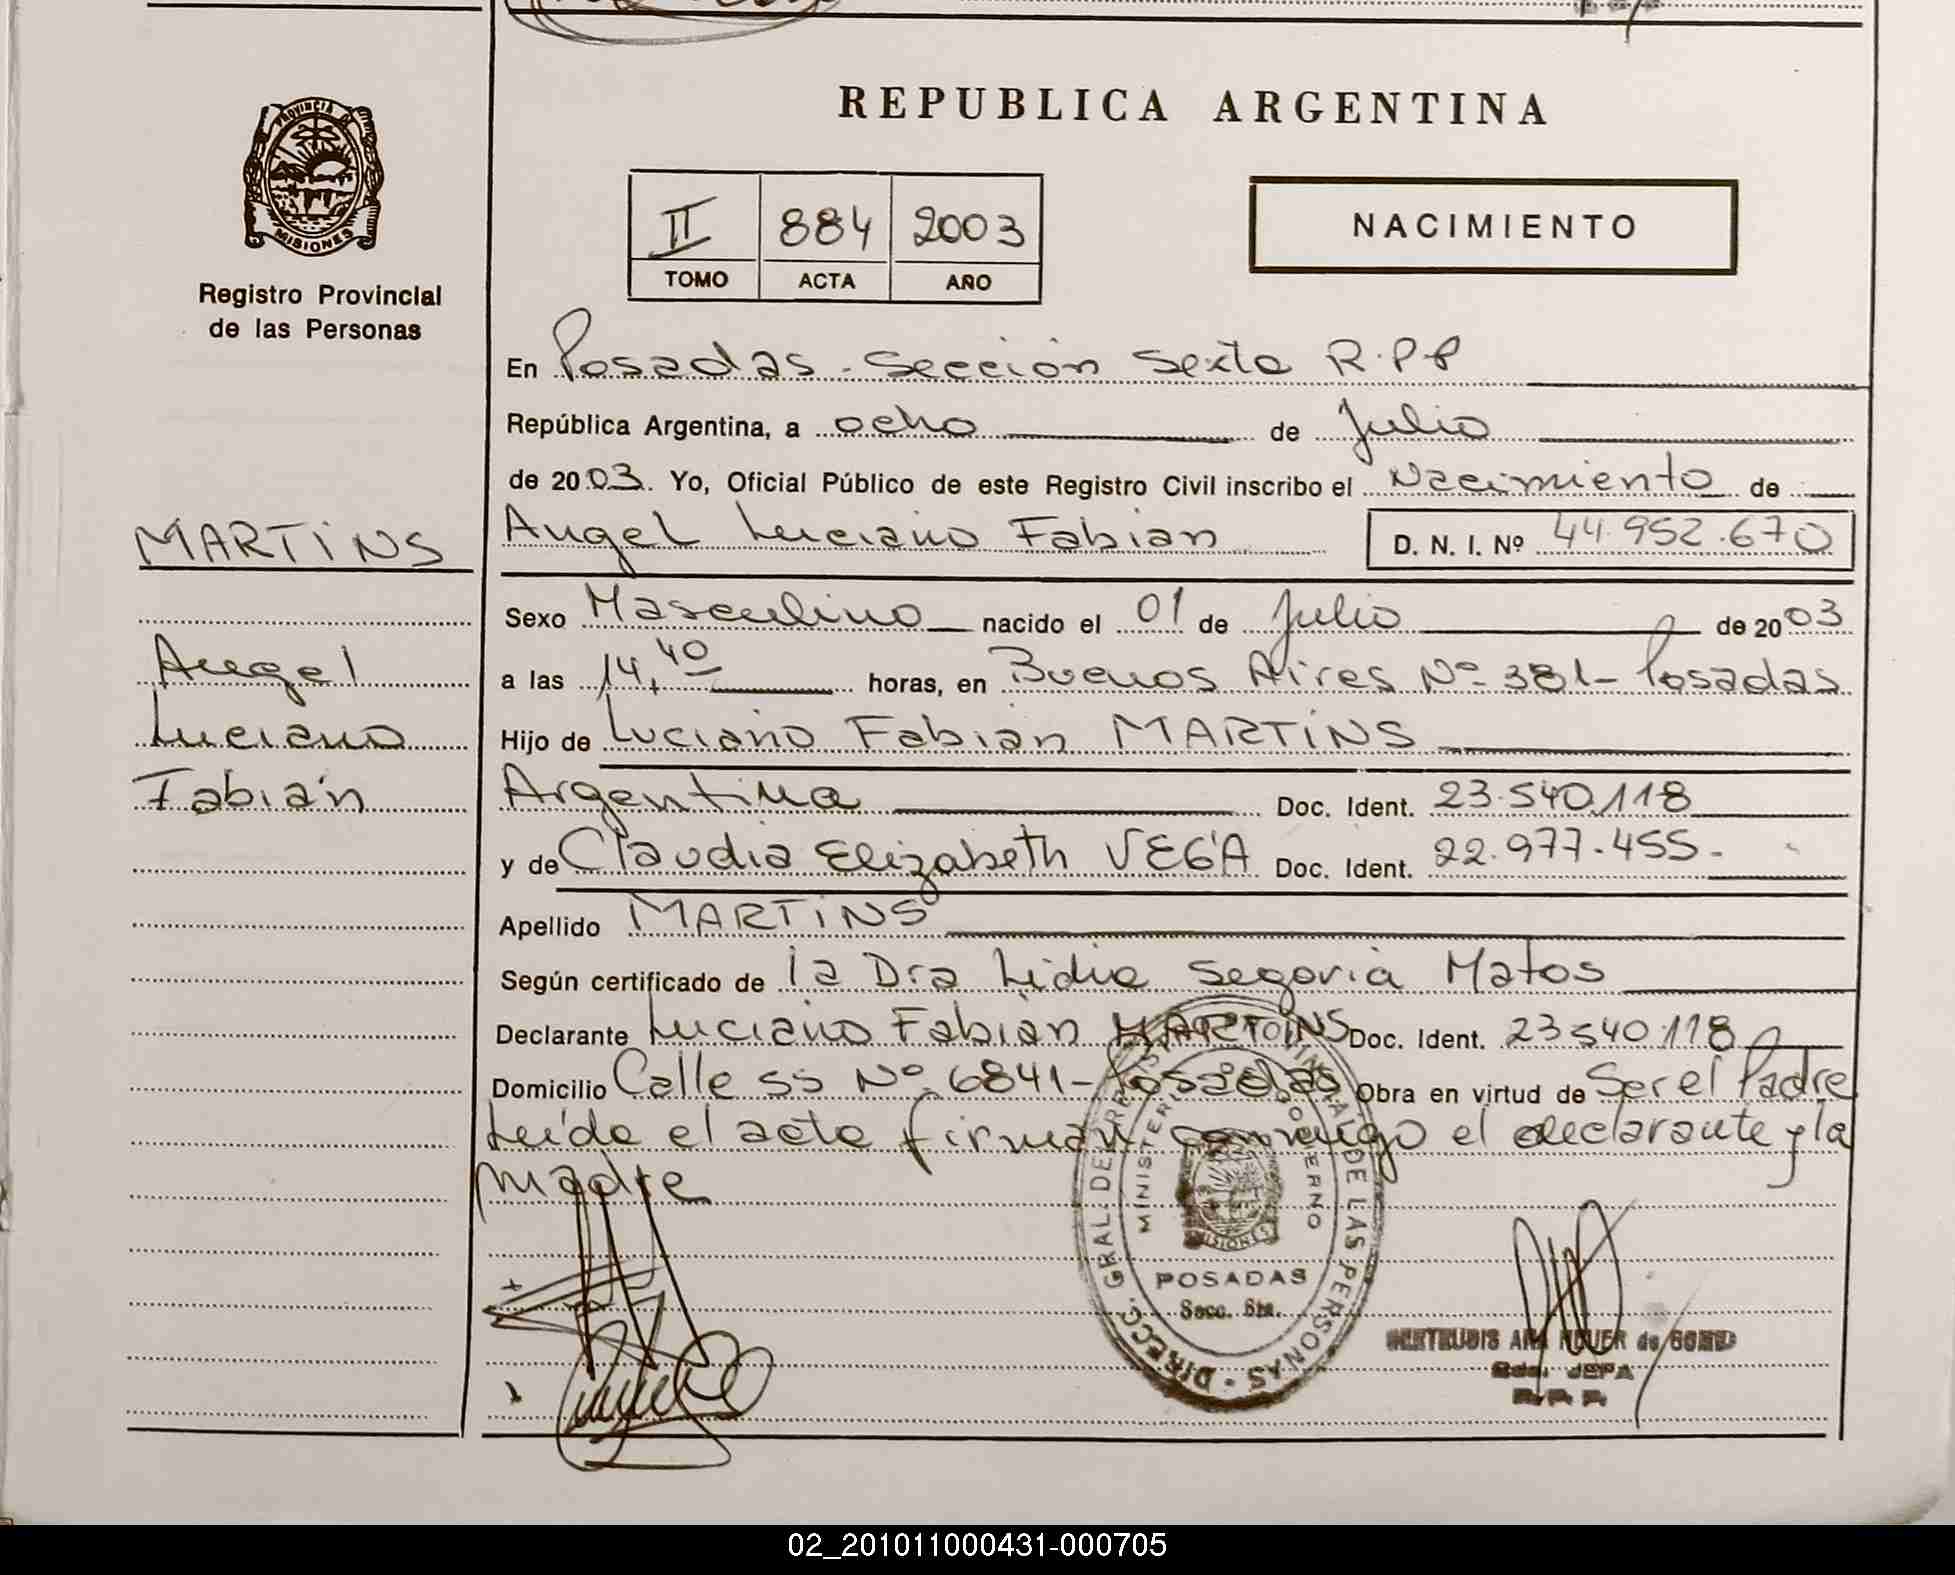 REPUBLICA ARGENTINA
PROVINCIA D
MISIONES
Registro Provincial
de las Personas
II 884 2003
TOMO ACTA AÑO
NACIMIENTO
En Posadas - Sección Sexta R.P.P
República Argentina, a ocho de Julio
de 2003. Yo, Oficial Público de este Registro Civil inscribo el Nacimiento de
Angel Luciano Fabian D. N. I. Nº 44.952.670
MARTiNS
Angel
Luciano
Fabián
Sexo Masculino nacido el 01 de Julio de 2003
a las 14,40 horas, en Buenos Aires Nº 381- Posadas
Hijo de Luciano Fabian MARTiNS
Argentina Doc. Ident. 23.540.118
y de Claudia Elizabeth VEGA Doc. Ident. 22.977.455-
Apellido MARTiNS
Según certificado de la Dra Lidia Segovia Matos
Declarante Luciano Fabian MARTINS Doc. Ident. 23540.118
Domicilio Calle 55 Nº 6841- Posadas Obra en virtud de Ser el Padre
Leída el acta firman conmigo el declarante y la
madre
DIRECC. GRAL. DE DE LAS PERSONAS
MINISTERI GOBIERNO
MISIONES
POSADAS
Secc. 6ta.
GERTRUDIS ANA de
JEFA
R.P.P.
02_201011000431-000705